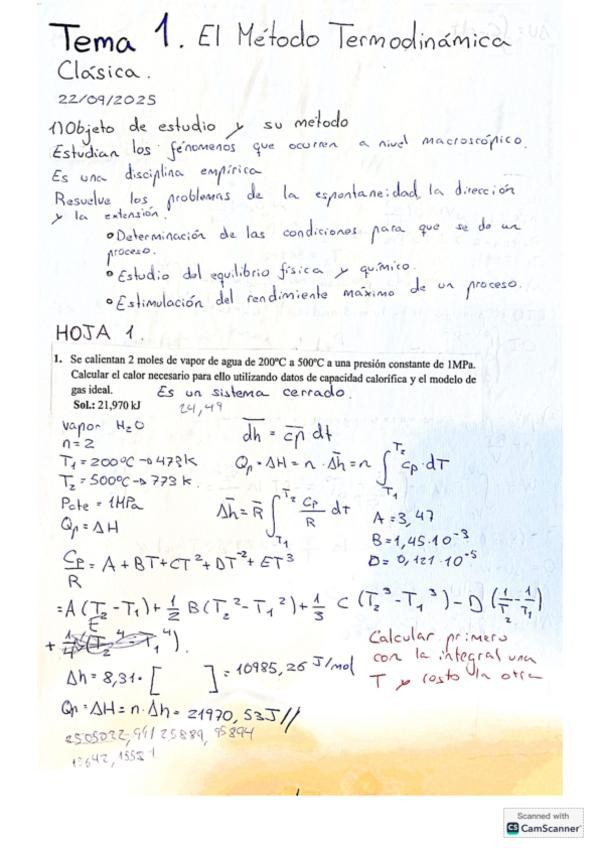 Tema 1. El Método Termodinámica
Clásica.
22/09/2025
1) Objeto de estudio y su método
Estudian los fénomenos que ocurren a nivel macroscópico.
Es una disciplina empírica
Resuelve los problemas de la espontaneidad, la dirección
y la extensión.
• Determinación de las condiciones para que se de un
proceso.
• Estudio del equilibrio física y químico.
• Estimulación del rendimiente máximo de un proceso.
HOJA 1
1. Se calientan 2 moles de vapor de agua de 200ºC a 500ºC a una presión constante de 1MPa.
Calcular el calor necesario para ello utilizando datos de capacidad calorífica y el modelo de
gas ideal. Es un sistema cerrado.
Sol.: 21,970 kJ 24,49
vapor H₂O
n = 2
T₁ = 200ºC → 473 K
T₂ = 500ºC → 773 K
Pcte = 1MPa
Qp = ΔH
dh = cp dt
Qp = ΔH = n · Δh = n ∫T₁T₂ cp · dT
Δh = R ∫T₁T₂ Cp/R dt
A = 3,47
B = 1,45·10⁻³
D = 0,121·10⁻⁵
Cp/R = A + BT + CT² + DT⁻² + ET³
= A (T₂ - T₁) + 1/2 B (T₂² - T₁²) + 1/3 C (T₂³ - T₁³) - D (1/T₂ - 1/T₁)
+ 1/4 E (T₂⁴ - T₁⁴).
Calcular primero
con la integral una
T y resto la otra
Δh = 8,31 · [ ] = 10985,26 J/mol
Qp = ΔH = n · Δh = 21970,53 J//
Scanned with
CS CamScanner